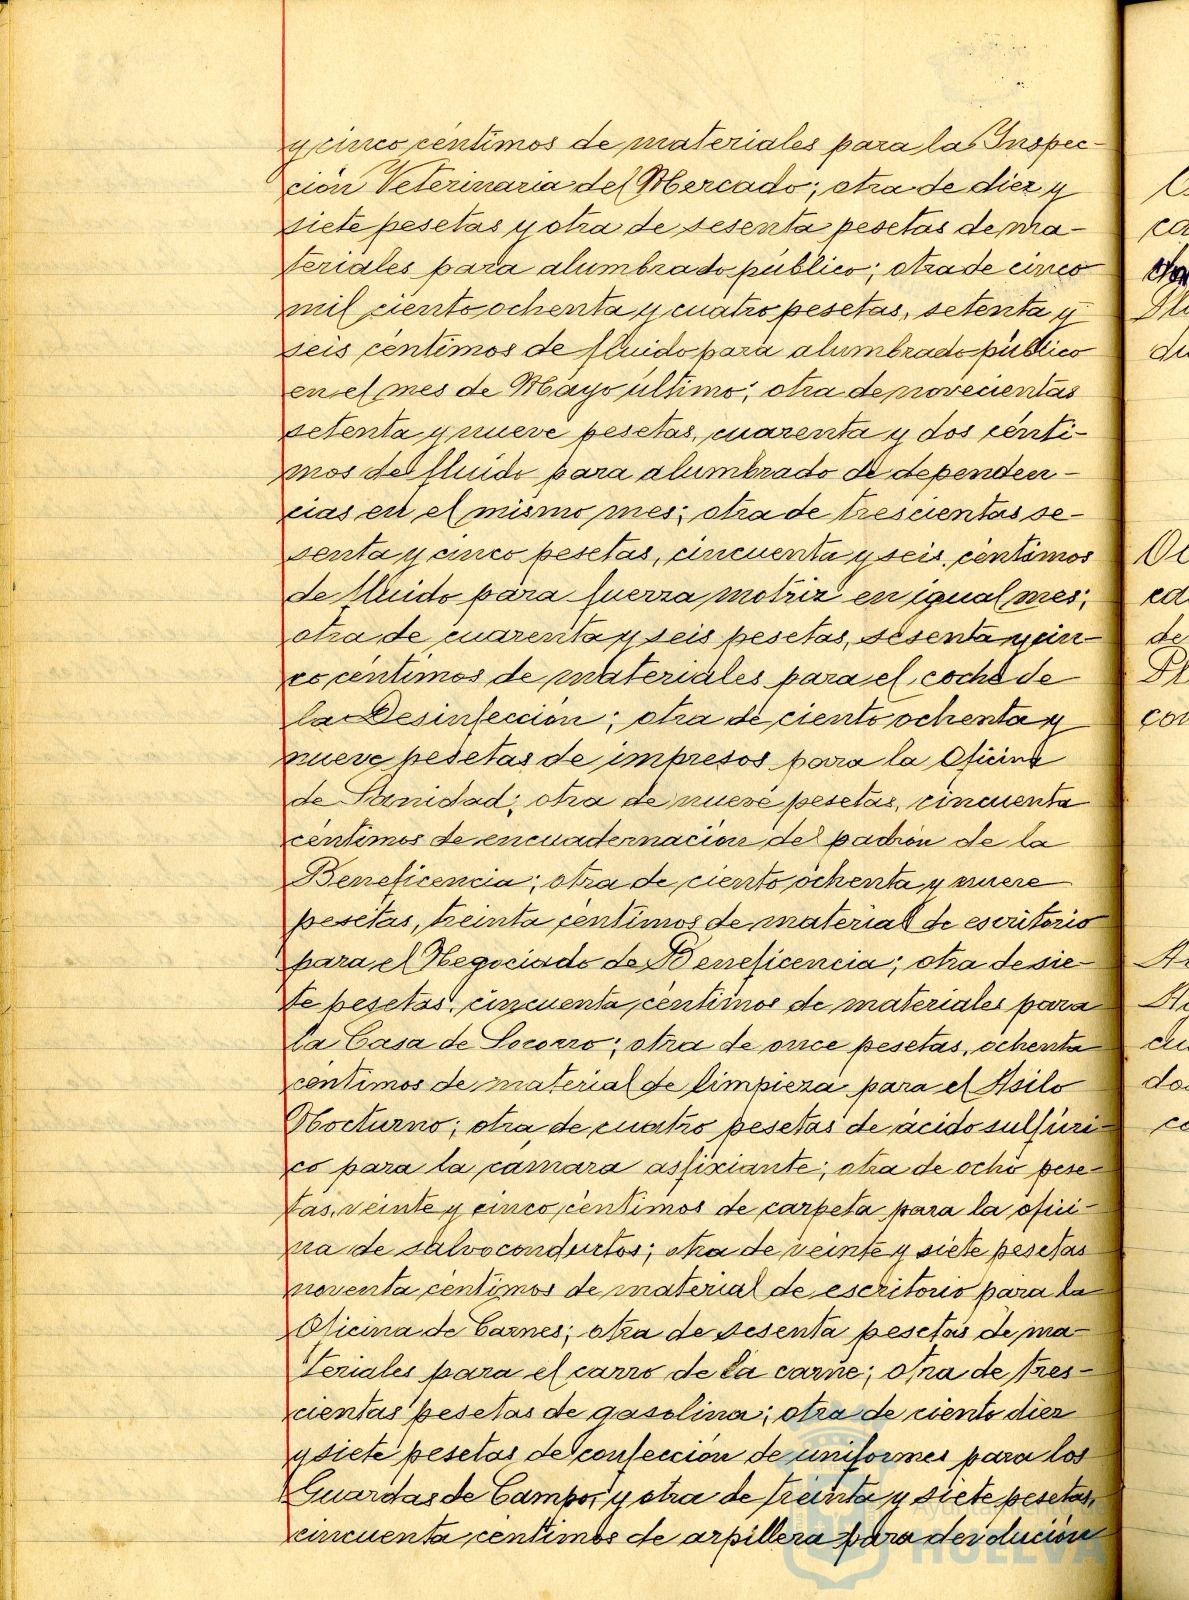 y cinco céntimos de materiales para la Inspec-
ción Veterinaria del Mercado; otra de diez y
siete pesetas y otra de sesenta pesetas de ma-
teriales para alumbrado público; otra de cinco
mil ciento ochenta y cuatro pesetas, setenta y
seis céntimos de fluido para alumbrado público
en el mes de Mayo último; otra de novecientas
setenta y nueve pesetas, cuarenta y dos cénti-
mos de fluido para alumbrado de dependen-
cias en el mismo mes; otra de trescientas se-
senta y cinco pesetas, cincuenta y seis céntimos
de fluido para fuerza motriz en igual mes;
otra de cuarenta y seis pesetas, sesenta y cin-
co céntimos de materiales para el coche de
la Desinfección; otra de ciento ochenta y
nueve pesetas de impresos para la Oficina
de Sanidad; otra de nueve pesetas, cincuenta
céntimos de encuadernación del padrón de la
Beneficencia; otra de ciento ochenta y nueve
pesetas, treinta céntimos de material de escritorio
para el Negociado de Beneficencia; otra de sie-
te pesetas, cincuenta céntimos de materiales para
la Casa de Socorro; otra de once pesetas, ochenta
céntimos de material de limpieza para el Asilo
Nocturno; otra de cuatro pesetas de ácido sulfúri-
co para la cámara asfixiante; otra de ocho pese-
tas, veinte y cinco céntimos de carpeta para la ofici-
na de salvoconductos; otra de veinte y siete pesetas
noventa céntimos de material de escritorio para la
Oficina de Carnes; otra de sesenta pesetas de ma-
teriales para el carro de la carne; otra de tres-
cientas pesetas de gasolina; otra de ciento diez
y siete pesetas de confección de uniformes para los
Guardas de Campo, y otra de treinta y siete pesetas,
cincuenta céntimos de arpillera para devolución
Ayuntamiento de
HUELVA